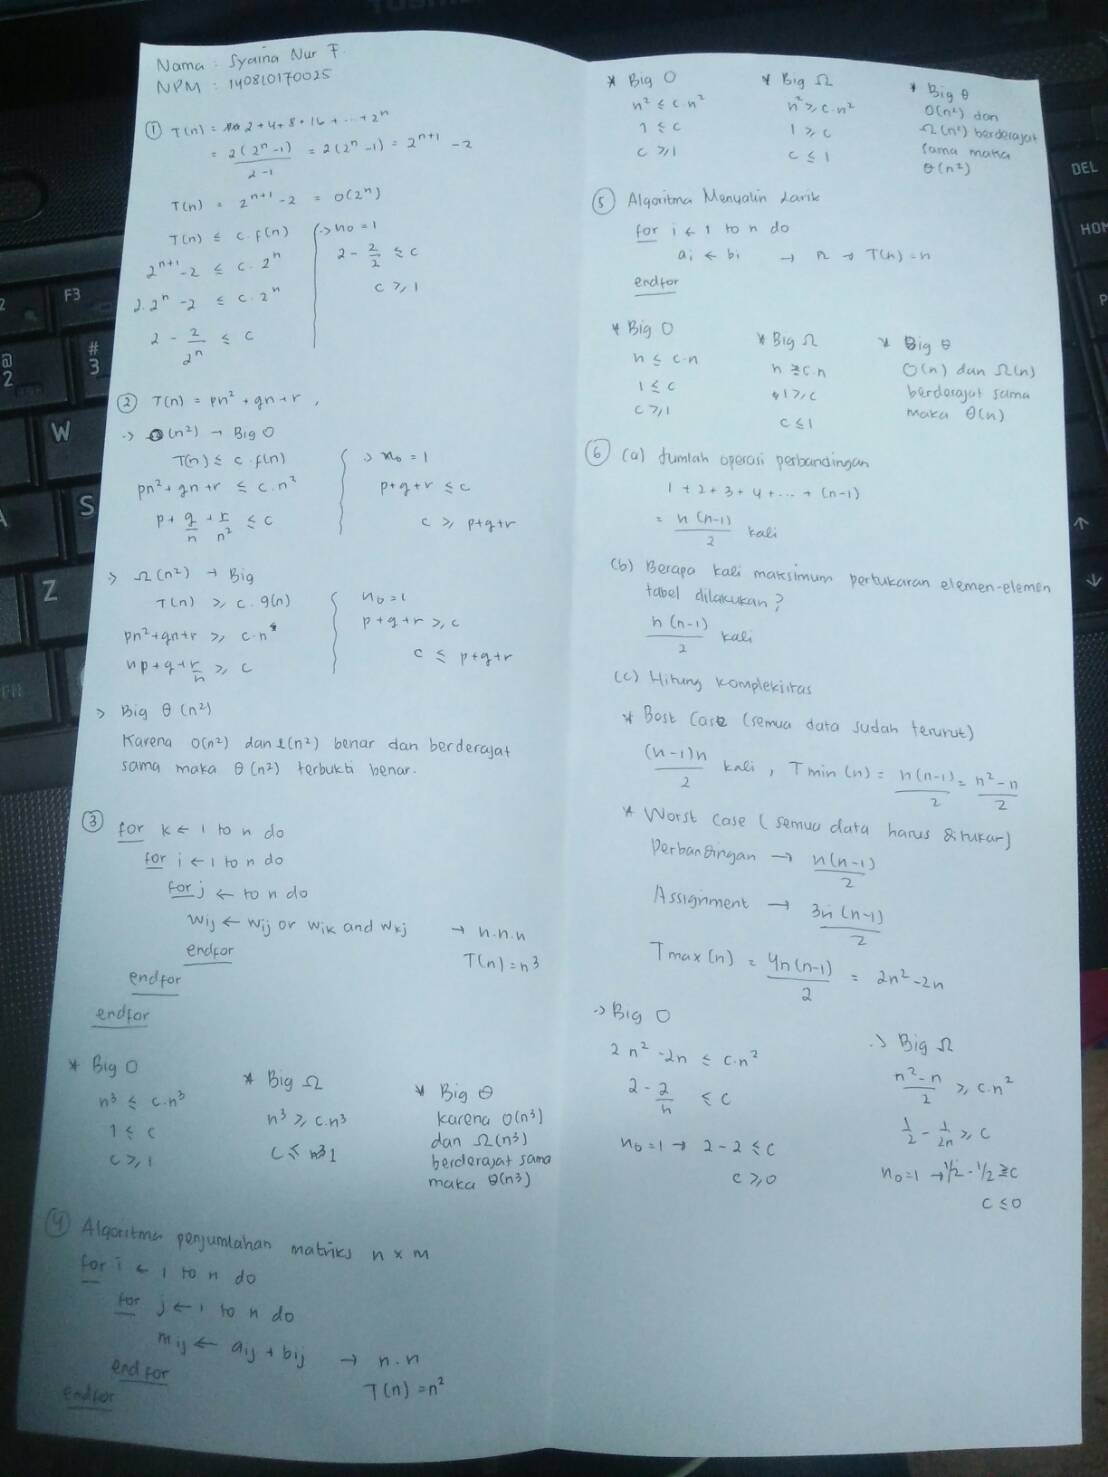 Nama : Syaina Nur F.
NPM : 140810170025
① T(n) = 2+4+8+16+...+2^n
= 2(2^n -1)/2-1 = 2(2^n -1) = 2^{n+1} -2
T(n) = 2^{n+1} -2 = O(2^n)
T(n) ≤ c.f(n)
2^{n+1} -2 ≤ c.2^n
2.2^n -2 ≤ c.2^n
2 - 2/2^n ≤ c
-> n0 = 1
2 - 2/2 ≤ c
c ≥ 1
② T(n) = pn² + qn + r,
-> O(n²) → Big O
T(n) ≤ c.f(n)
pn²+qn+r ≤ c.n²
p + q/n + r/n² ≤ c
-> n0 = 1
p+q+r ≤ c
c ≥ p+q+r
> Ω(n²) → Big
T(n) ≥ c.g(n)
pn²+qn+r ≥ c.n²
np+q+r/n ≥ c
n0=1
p+q+r ≥ c
c ≤ p+q+r
> Big θ (n²)
Karena O(n²) dan Ω(n²) benar dan berderajat
sama maka θ(n²) terbukti benar.
③ for k ← 1 to n do
for i ← 1 to n do
for j ← to n do
wij ← wij or wik and wkj → n.n.n
endfor T(n) = n³
endfor
endfor
* Big O
n³ ≤ c.n³
1 ≤ c
c ≥ 1
* Big Ω
n³ ≥ c.n³
c ≤ 1
* Big θ
karena O(n³)
dan Ω(n³)
berderajat sama
maka θ(n³)
④ Algoritma penjumlahan matriks n x m
for i ← 1 to n do
for j ← 1 to n do
mij ← aij + bij → n.n
endfor T(n) = n²
endfor
* Big O
n² ≤ c.n²
1 ≤ c
c ≥ 1
* Big Ω
n² ≥ c.n²
1 ≥ c
c ≤ 1
* Big θ
O(n²) dan
Ω(n²) berderajat
sama maka
θ(n²)
⑤ Algoritma Menyalin larik
for i ← 1 to n do
ai ← bi → n → T(n) = n
endfor
* Big O
n ≤ c.n
1 ≤ c
c ≥ 1
* Big Ω
n ≥ c.n
1 ≥ c
c ≤ 1
* Big θ
O(n) dan Ω(n)
berderajat sama
maka θ(n)
⑥ (a) Jumlah operasi perbandingan
1+2+3+4+...+(n-1)
= n(n-1)/2 kali
(b) Berapa kali maksimum pertukaran elemen-elemen
tabel dilakukan?
n(n-1)/2 kali
(c) Hitung kompleksitas
* Best Case (semua data sudah terurut)
(n-1)n/2 kali, Tmin(n) = n(n-1)/2 = n²-n/2
* Worst Case (semua data harus ditukar)
Perbandingan → n(n-1)/2
Assignment → 3n(n-1)/2
Tmax(n) = 4n(n-1)/2 = 2n²-2n
-> Big O
2n²-2n ≤ c.n²
2 - 2/n ≤ c
n0=1 → 2-2 ≤ c
c ≥ 0
-> Big Ω
n²-n/2 ≥ c.n²
1/2 - 1/2n ≥ c
n0=1 → 1/2 - 1/2 ≥ c
c ≤ 0
F3
@
2
#
3
W
A
S
Z
FN
DEL
HOM
P